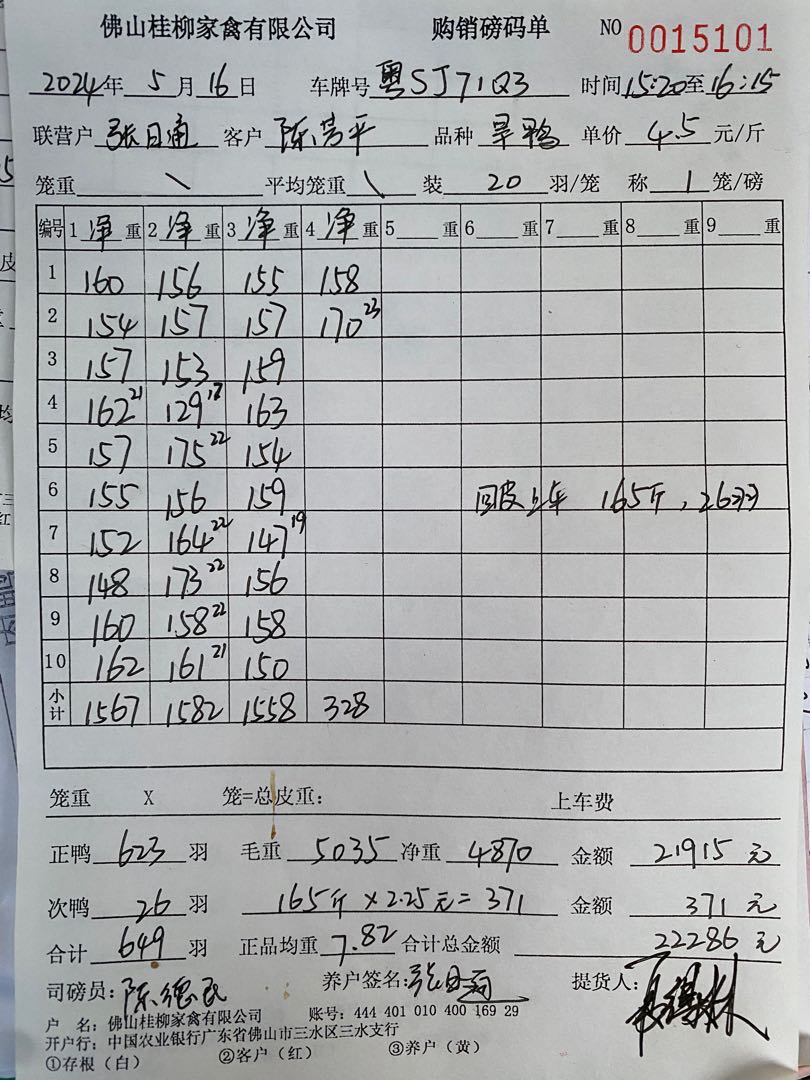 佛山桂柳家禽有限公司 购销磅码单 NO 0015101
2024年 5月16日 车牌号 粤SJ71Q3 时间15:20至16:15
联营户 张日通 客户 陈芳平 品种 旱鸭 单价 4.5 元/斤
笼重 \ 平均笼重 \ 装 20 羽/笼 称 1 笼/磅
编号 1 净 重 2 净 重 3 净 重 4 净 重 5 重 6 重 7 重 8 重 9 重
1 160 156 155 158
2 154 157 157 170 23
3 157 153 159
4 162 21 129 17 163
5 157 175 22 154
6 155 156 159 回皮上车 165斤，26羽
7 152 164 22 147 19
8 148 173 22 156
9 160 158 22 158
10 162 161 21 150
小计 1567 1582 1558 328
笼重 X 笼=总皮重： 上车费
正鸭 623 羽 毛重 5035 净重 4870 金额 21915 元
次鸭 26 羽 165斤×2.25元=371 金额 371 元
合计 649 羽 正品均重 7.82 合计总金额 22286 元
司磅员： 陈德民 养户签名： 提货人：
户 名：佛山桂柳家禽有限公司 账号：444 401 010 400 169 29
开户行：中国农业银行广东省佛山市三水区三水支行
①存根（白） ②客户（红） ③养户（黄）